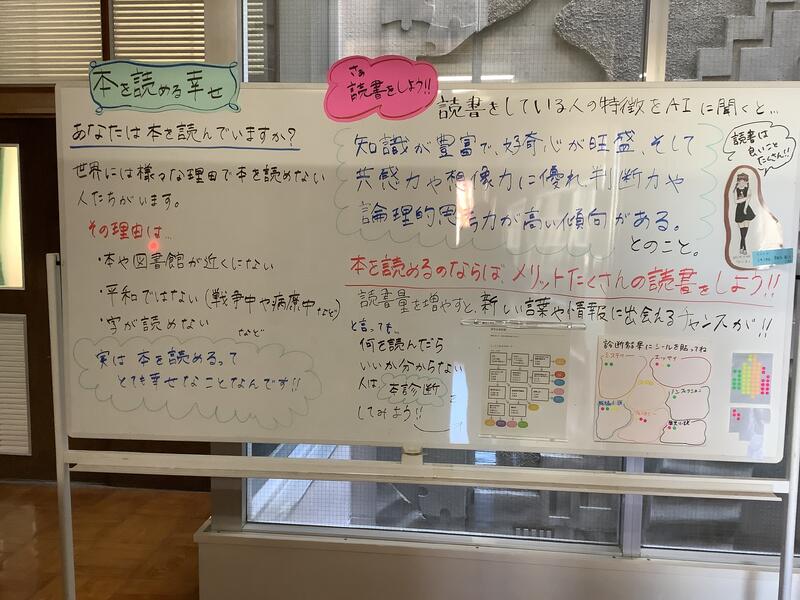 本を読める幸せ
あなたは本を読んでいますか?
世界には様々な理由で本を読めない
人たちがいます。
その理由は…
・本や図書館が近くにない
・平和ではない(戦争中や病床中など)
・字が読めない
など
実は本を読めるって
とても幸せなことなんです!!
さぁ
読書をしよう!!
読書をしている人の特徴をAIに聞くと…
知識が豊富で、好奇心が旺盛、そして
共感力や想像力に優れ、判断力や
論理的思考力が高い傾向がある。
とのこと。
読書は
良いこと
たくさん!!
本を読めるのならば、メリットたくさんの読書をしよう!!
読書量を増やすと、新しい言葉や情報に出会えるチャンスが!!
と言っても…
何を読んだら
いいか分からない
人は、本診断
してみよう!!
診断結果にシールを貼ってね
ミステリー
エッセイ
ノンフィクション
歴史小説